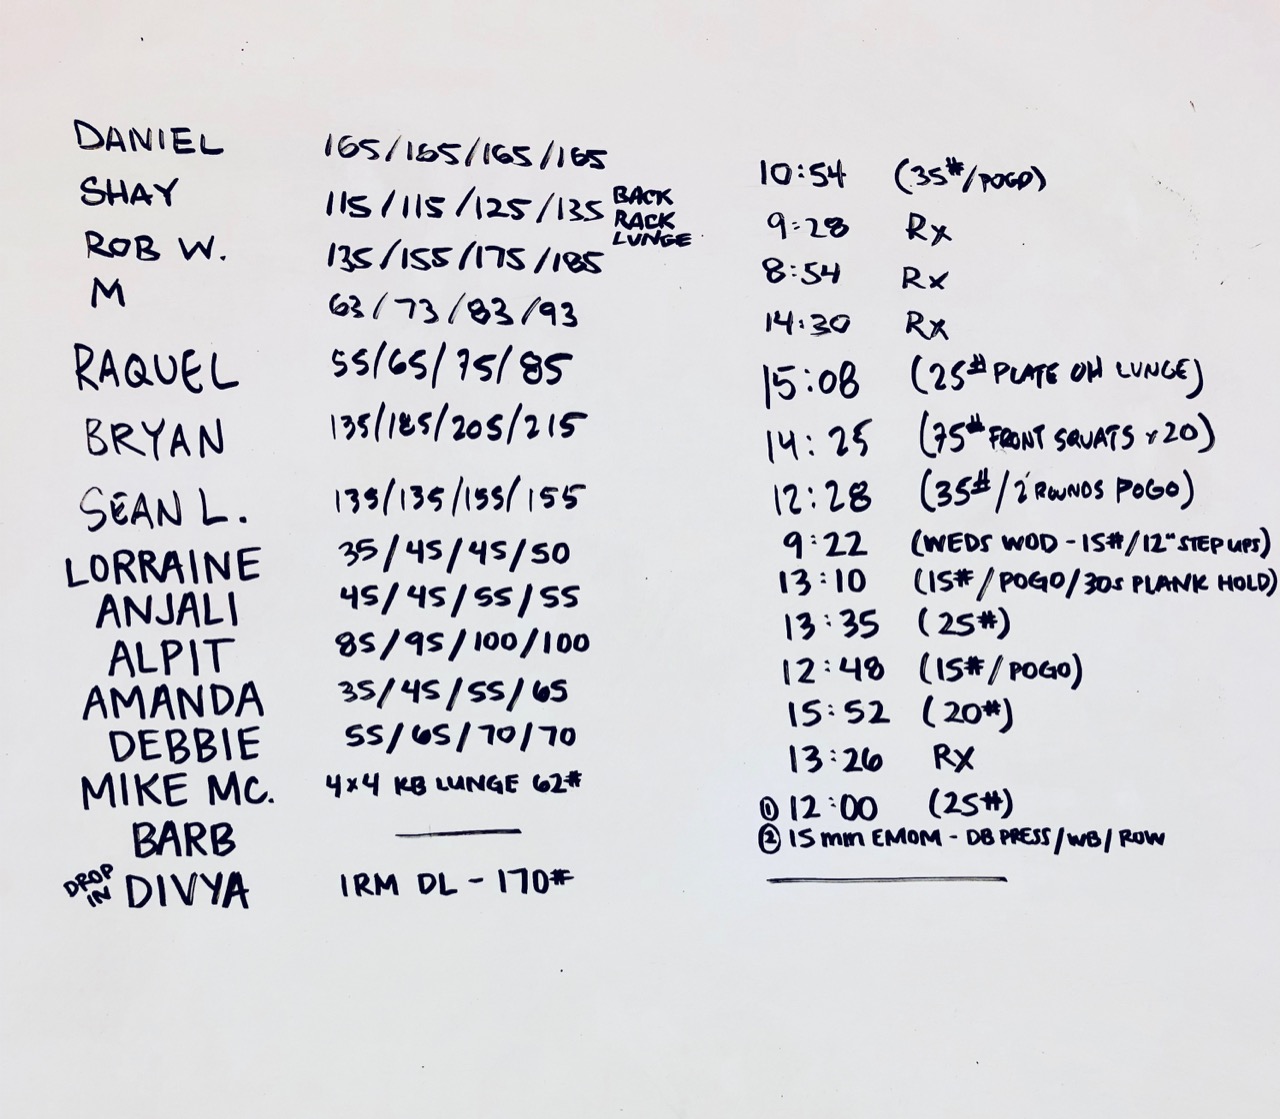 DANIEL 165/165/165/165 10:54 (35#/POGO)
SHAY 115/115/125/135 BACK RACK LUNGE 9:28 Rx
ROB W. 135/155/175/185 8:54 Rx
M 63/73/83/93 14:30 Rx
RAQUEL 55/65/75/85 15:08 (25# PLATE OH LUNGE)
BRYAN 135/185/205/215 14:25 (75# FRONT SQUATS x20)
SEAN L. 135/135/155/155 12:28 (35#/2 ROUNDS POGO)
LORRAINE 35/45/45/50 9:22 (WEDS WOD - 15#/12" STEP UPS)
ANJALI 45/45/55/55 13:10 (15#/POGO/30s PLANK HOLD)
ALPIT 85/95/100/100 13:35 (25#)
AMANDA 35/45/55/65 12:48 (15#/POGO)
DEBBIE 55/65/70/70 15:52 (20#)
MIKE MC. 4x4 KB LUNGE 62# 13:26 RX
BARB ① 12:00 (25#)
② 15 min EMOM - DB PRESS/WB/ROW
DROP IN DIVYA 1RM DL - 170#